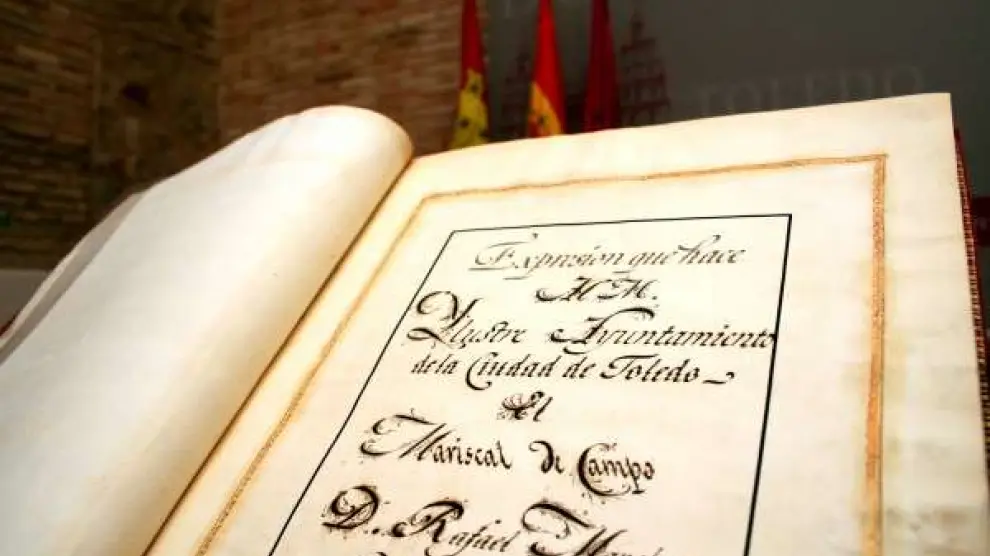 TOLEDO
Expresion que hace
Al M.
Ylustre Ayuntamiento
de la Ciudad de Toledo
El
Mariscal de Campo
D. Rafael